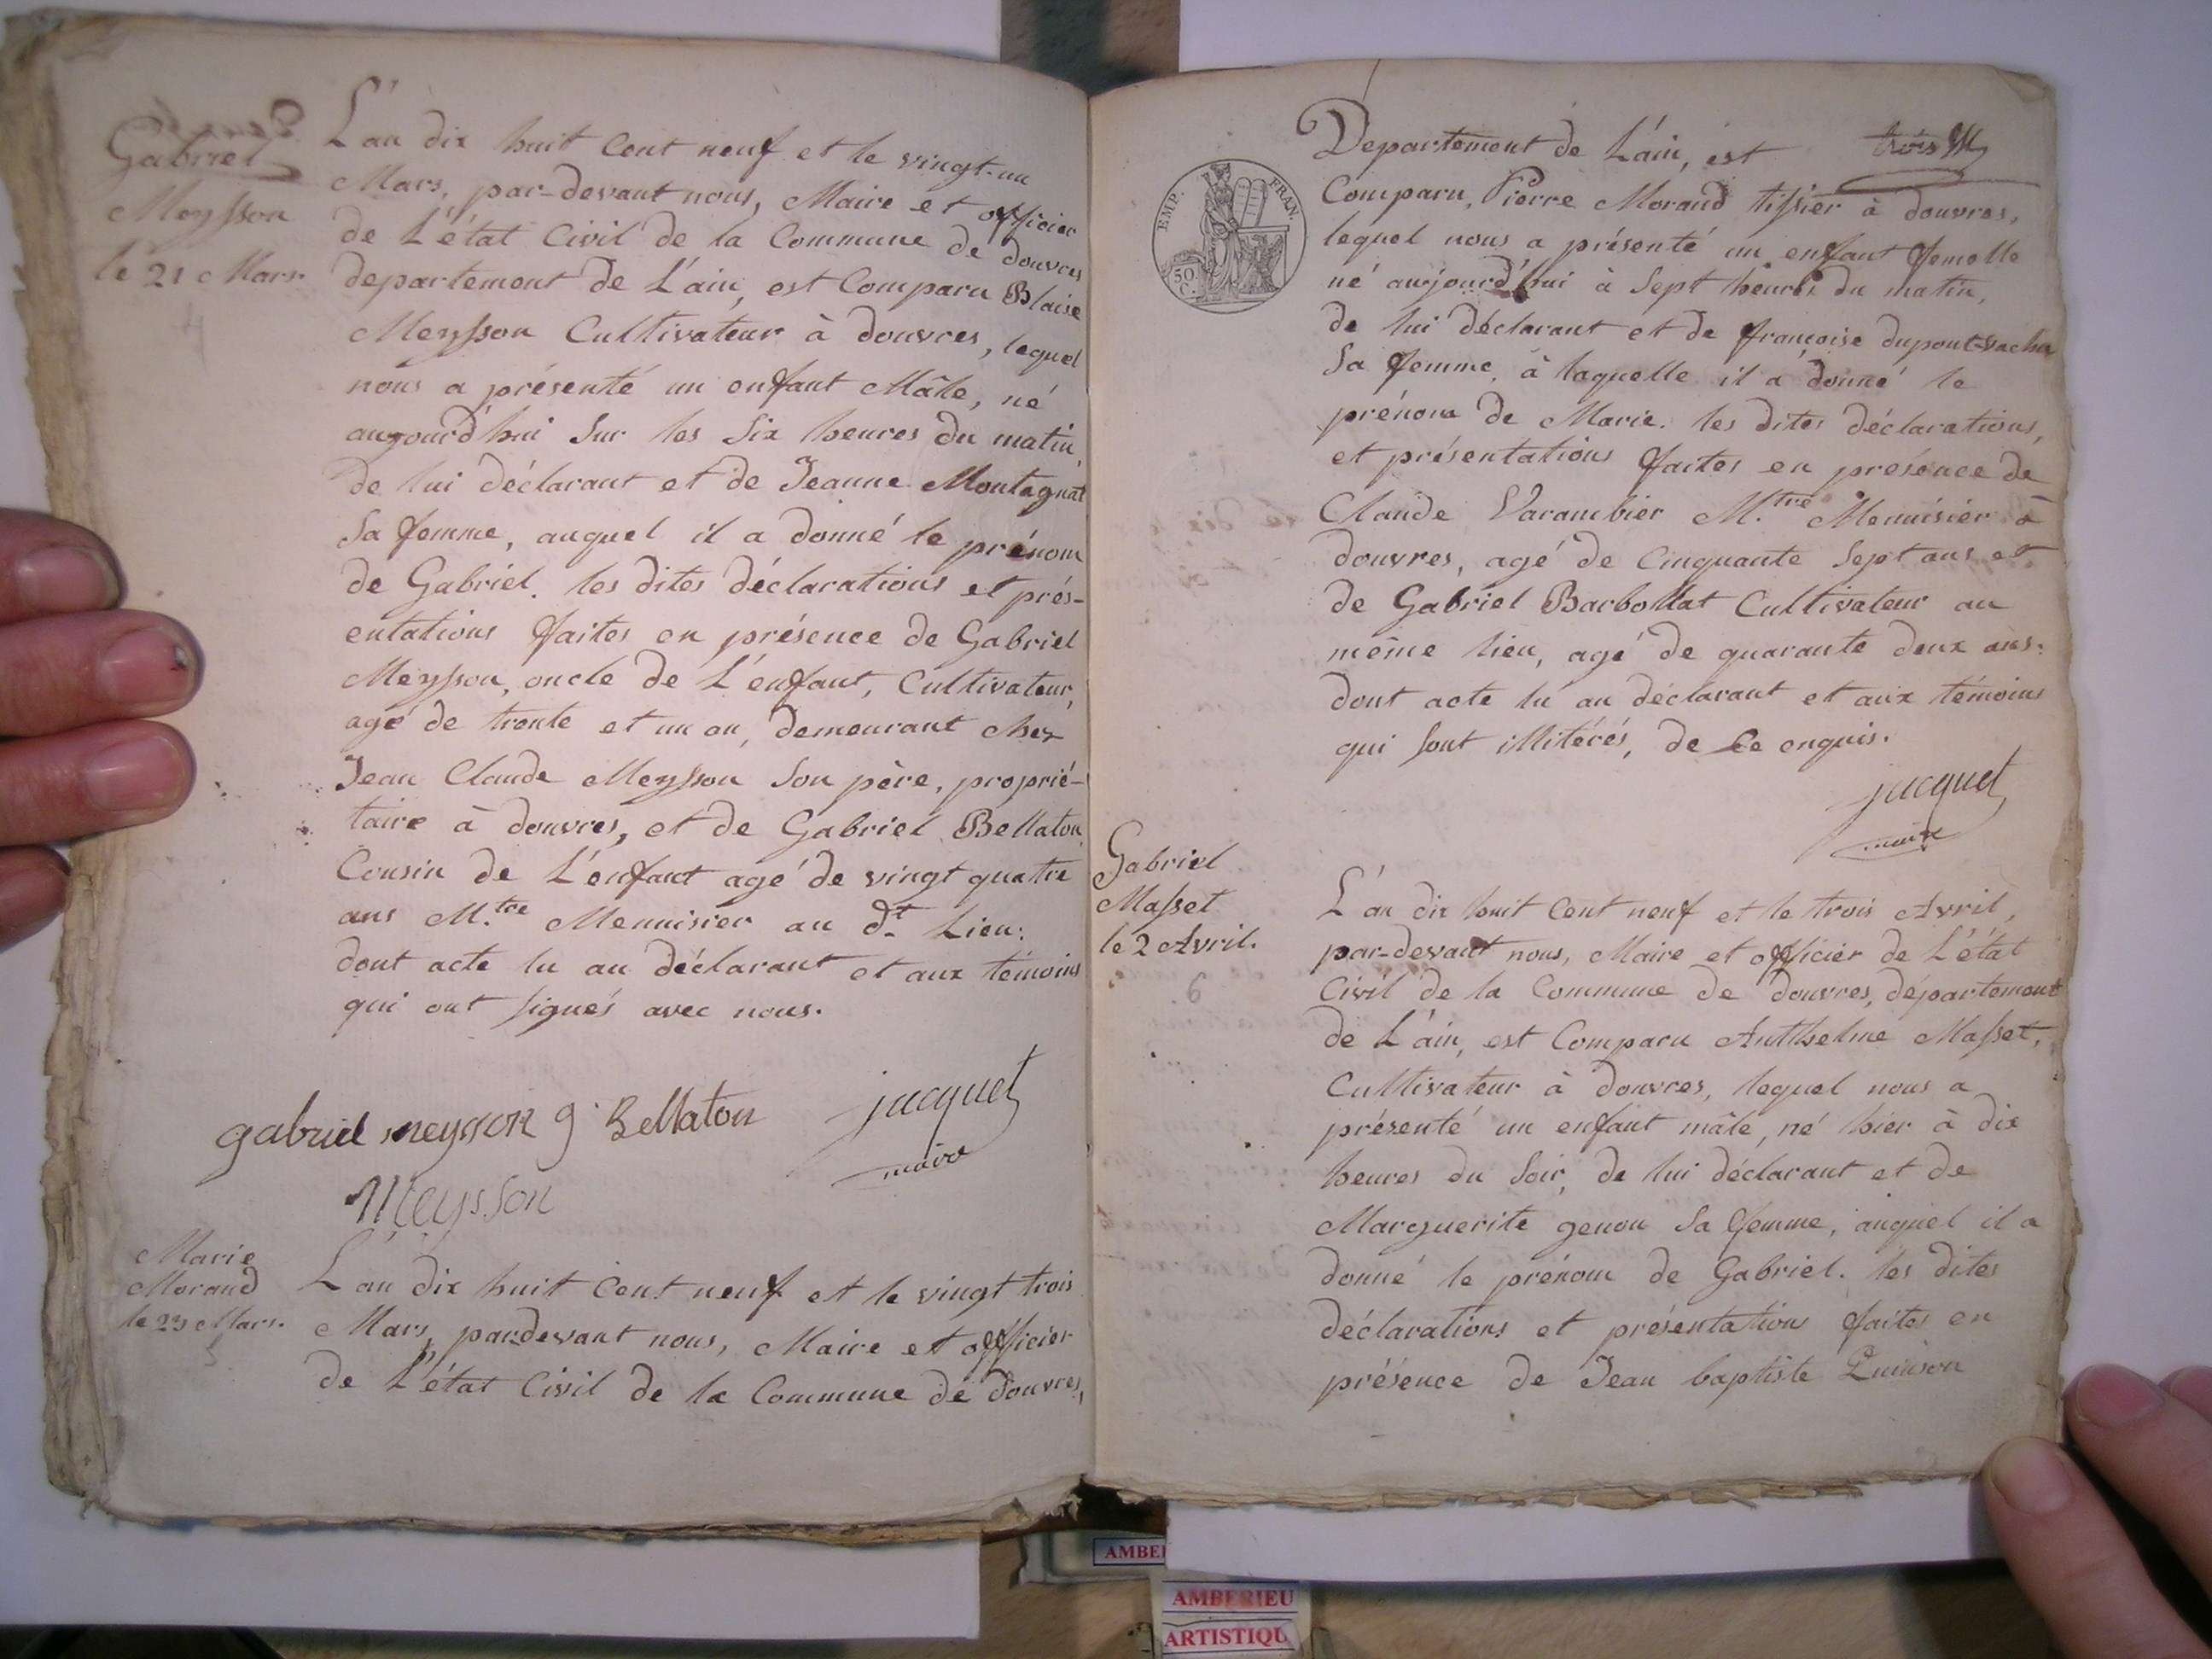 Gabriel
Meysson
le 21 Mars.
4
L'an dix huit Cent neuf et le vingt-un
Mars, par-devant nous, Maire et officier
de L'état Civil de la Commune de douvres
departement de L'ain, est Comparu Blaise
Meysson Cultivateur à douvres, lequel
nous a présenté un enfant Mâle, né
aujourd'hui sur les six heures du matin,
de lui déclarant et de Jeanne Montagnat
sa femme, auquel il a donné le prénom
de Gabriel. les dites déclarations et prés-
entations faites en présence de Gabriel
Meysson, oncle de L'enfant, Cultivateur,
agé de trente et un an, demeurant chez
Jean Claude Meysson son père, proprié-
taire à douvres, et de Gabriel Bellaton
Cousin de L'enfant agé de vingt quatre
ans M.tre Menuisier au d.t Lieu.
dont acte lu au déclarant et aux témoins
qui ont signés avec nous.
gabriel meysson g Bellaton jacquet
maire
Meysson
Marie
Morand
le 23 Mars.
5
L'an dix huit Cent neuf et le vingt trois
Mars, par-devant nous, Maire et officier
de L'état Civil de la Commune de douvres,
EMP. FRAN.
50 C.
trois
Departement de L'ain, est
Comparu, Pierre Morand tissier à douvres,
lequel nous a présenté un enfant femelle
né aujourd'hui à sept heures du matin,
de lui déclarant et de françoise dupont-vacher
sa femme, à laquelle il a donné le
prénom de Marie. les dites déclarations,
et présentations faites en présence de
Claude Varambier M.tre Menuisier à
douvres, agé de Cinquante sept ans et
de Gabriel Barbollat Cultivateur au
même lieu, agé de quarante deux ans.
dont acte lu au déclarant et aux témoins
qui sont illitérés, de Ce enquis.
jacquet
maire
Gabriel
Masset
le 2 Avril.
6
L'an dix huit Cent neuf et le trois Avril,
par-devant nous, Maire et officier de L'état
Civil de la Commune de douvres, département
de L'ain, est Comparu Anthelme Masset,
Cultivateur à douvres, lequel nous a
présenté un enfant mâle, né hier à dix
heures du soir, de lui déclarant et de
Marguerite genou sa femme, auquel il a
donné le prénom de Gabriel. les dites
déclarations et présentations faites en
présence de Jean baptiste Quinson
AMBE
AMBERIEU
ARTISTIQU